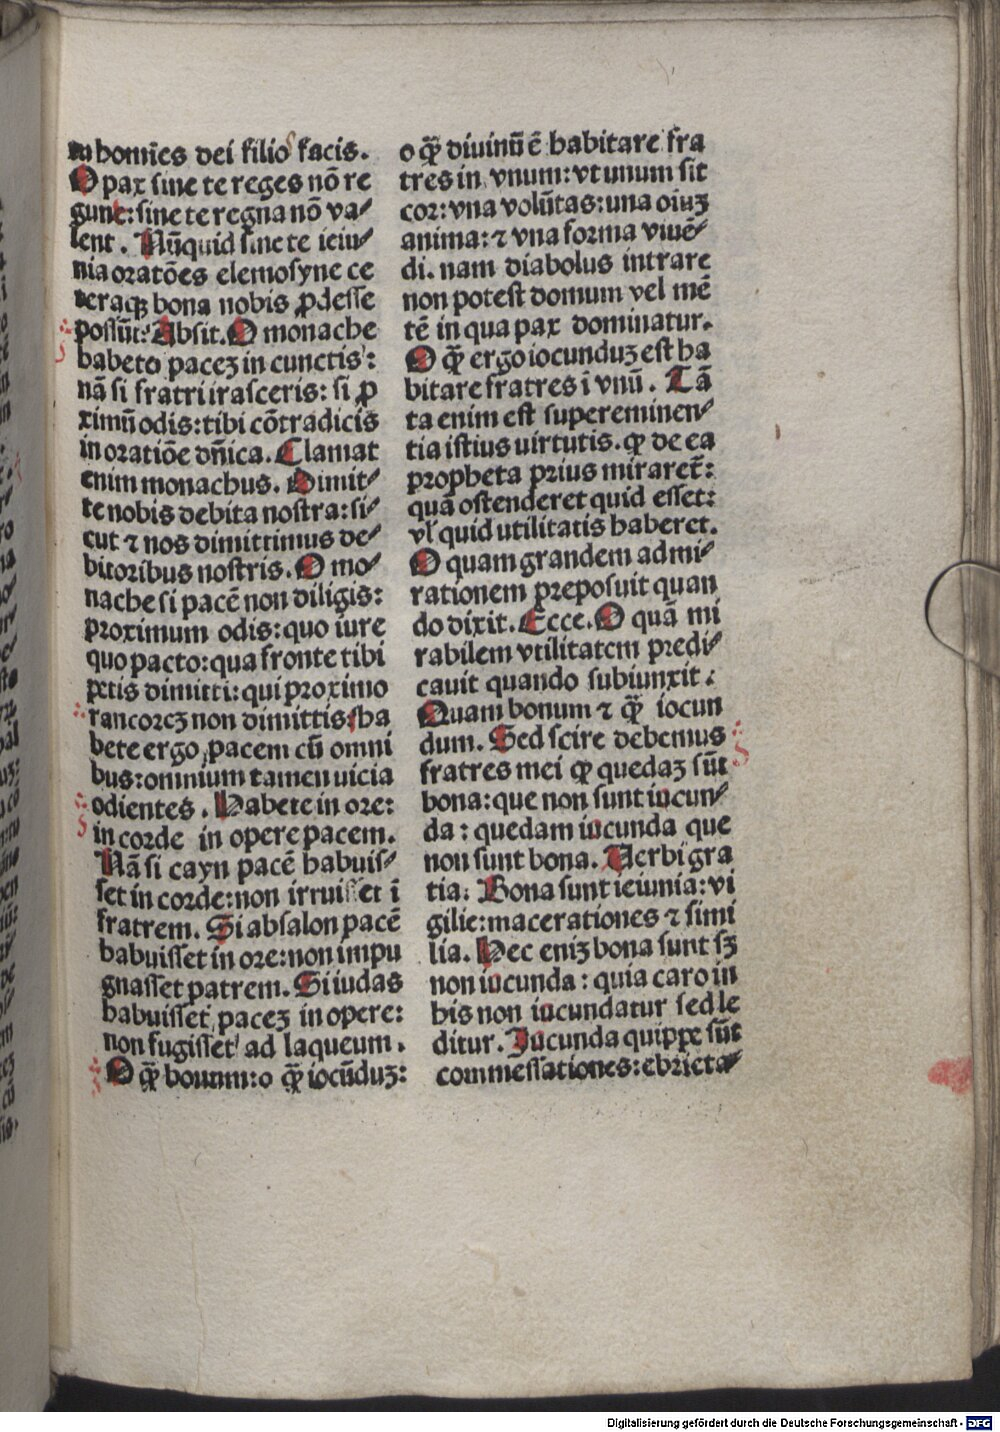 tu homīes dei filios facis.
O pax sine te reges nō re
gunt: sine te regna nō va⸗
lent. Nūquid sine te ieiu⸗
nia oratōes elemosyne ce
teraqꝫ bona nobis ꝓdesse
possūt: Absit. O monache
habeto paceꝫ in cunctis:
nā si fratri irasceris: si ꝓ
ximū odis: tibi cōtradicis
in oratiōe dn̄ica. Clamat
enim monachus. Dimit⸗
te nobis debita nostra: si⸗
cut ⁊ nos dimittimus de⸗
bitoribus nostris. O mo⸗
nache si pacē non diligis:
proximum odis: quo iure
quo pacto: qua fronte tibi
petis dimitti: qui proximo
rancoreꝫ non dimittis: ha
bete ergo pacem cū omni
bus: omnium tamen uicia
odientes. Habete in ore:
in corde in opere pacem.
Nā si cayn pacē habuis⸗
set in corde: non irruisset ī
fratrem. Si absalon pacē
habuisset in ore: non impu
gnasset patrem. Si iudas
habuisset paceꝫ in opere:
non fugisset ad laqueum.
O qͣ̄ bonum: o qͣ̄ iocūduꝫ:
o qͣ̄ diuinū ē habitare fra
tres in vnum: vt unum sit
cor: vna volūtas: una oiuꝫ
anima: ⁊ vna forma viuē⸗
di. nam diabolus intrare
non potest domum vel mē
tē in qua pax dominatur.
O qͣ̄ ergo iocunduꝫ est ha
bitare fratres ī vnū. Tā
ta enim est supereminen⸗
tia istius uirtutis. ꝙ de ea
propheta prius miraret̄:
quā ostenderet quid esset:
vl̓ quid utilitatis haberet.
O quam grandem admi⸗
rationem preposuit quan
do dixit. Ecce. O quā mi
rabilem vtilitatem predi⸗
cauit quando subiunxit:
Quam bonum ⁊ qͣ̄ iocun
dum. Sed scire debemus
fratres mei ꝙ quedaꝫ sūt
bona: que non sunt iucun⸗
da: quedam iucunda que
non sunt bona. Uerbi gra
tia: Bona sunt ieiunia: vi
gilie: macerationes ⁊ simi
lia. Hec eniꝫ bona sunt sꝫ
non iucunda: quia caro in
his non iucundatur sed le
ditur. Jucunda quippe sūt
commessationes: ebrieta⸗
Digitalisierung gefördert durch die Deutsche Forschungsgemeinschaft - DFG